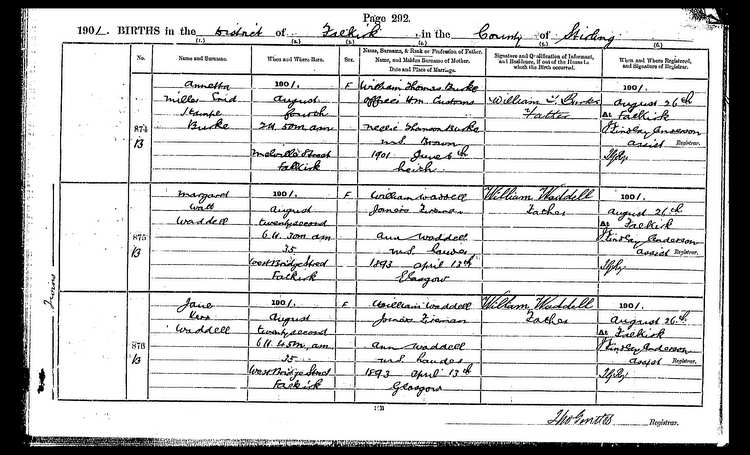 Page 292.
1901. BIRTHS in the District of Falkirk in the County of Stirling
(1.) (2.) (3.) (4.) (5.) (6.)
No. Name and Surname. When and Where Born. Sex. Name, Surname, & Rank or Profession of Father. Name, and Maiden Surname of Mother. Date and Place of Marriage. Signature and Qualification of Informant, and Residence, if out of the House in which the Birth occurred. When and Where Registered, and Signature of Registrar.
Annetta 1901. F William Thomas Burke 1901.
Miller Enid August Officer H.M. Customs William T. Burke August 26th
Fourth Father At Falkirk
Burke 2h. 50m. am Nellie Burke J Lindsay Anderson
874 M.S. Brown Assist Registrar.
B Melville Street 1901 June 6th
Falkirk Leith
Margaret 1901. F William Waddell William Waddell 1901.
Watt August Father August 26th
Waddell twenty second At Falkirk
875 6h. 30m. am Ann Waddell J Lindsay Anderson
B 35 M.S. Assist Registrar.
West Bridge Street 1893 April 13th
Falkirk Glasgow
Twins
Jane 1901. F William Waddell William Waddell 1901.
Kerr August Father August 26th
Waddell twenty second At Falkirk
876 6h. 45m. am Ann Waddell J Lindsay Anderson
B 35 M.S. Assist Registrar.
West Bridge Street 1893 April 13th
Falkirk Glasgow
Registrar.